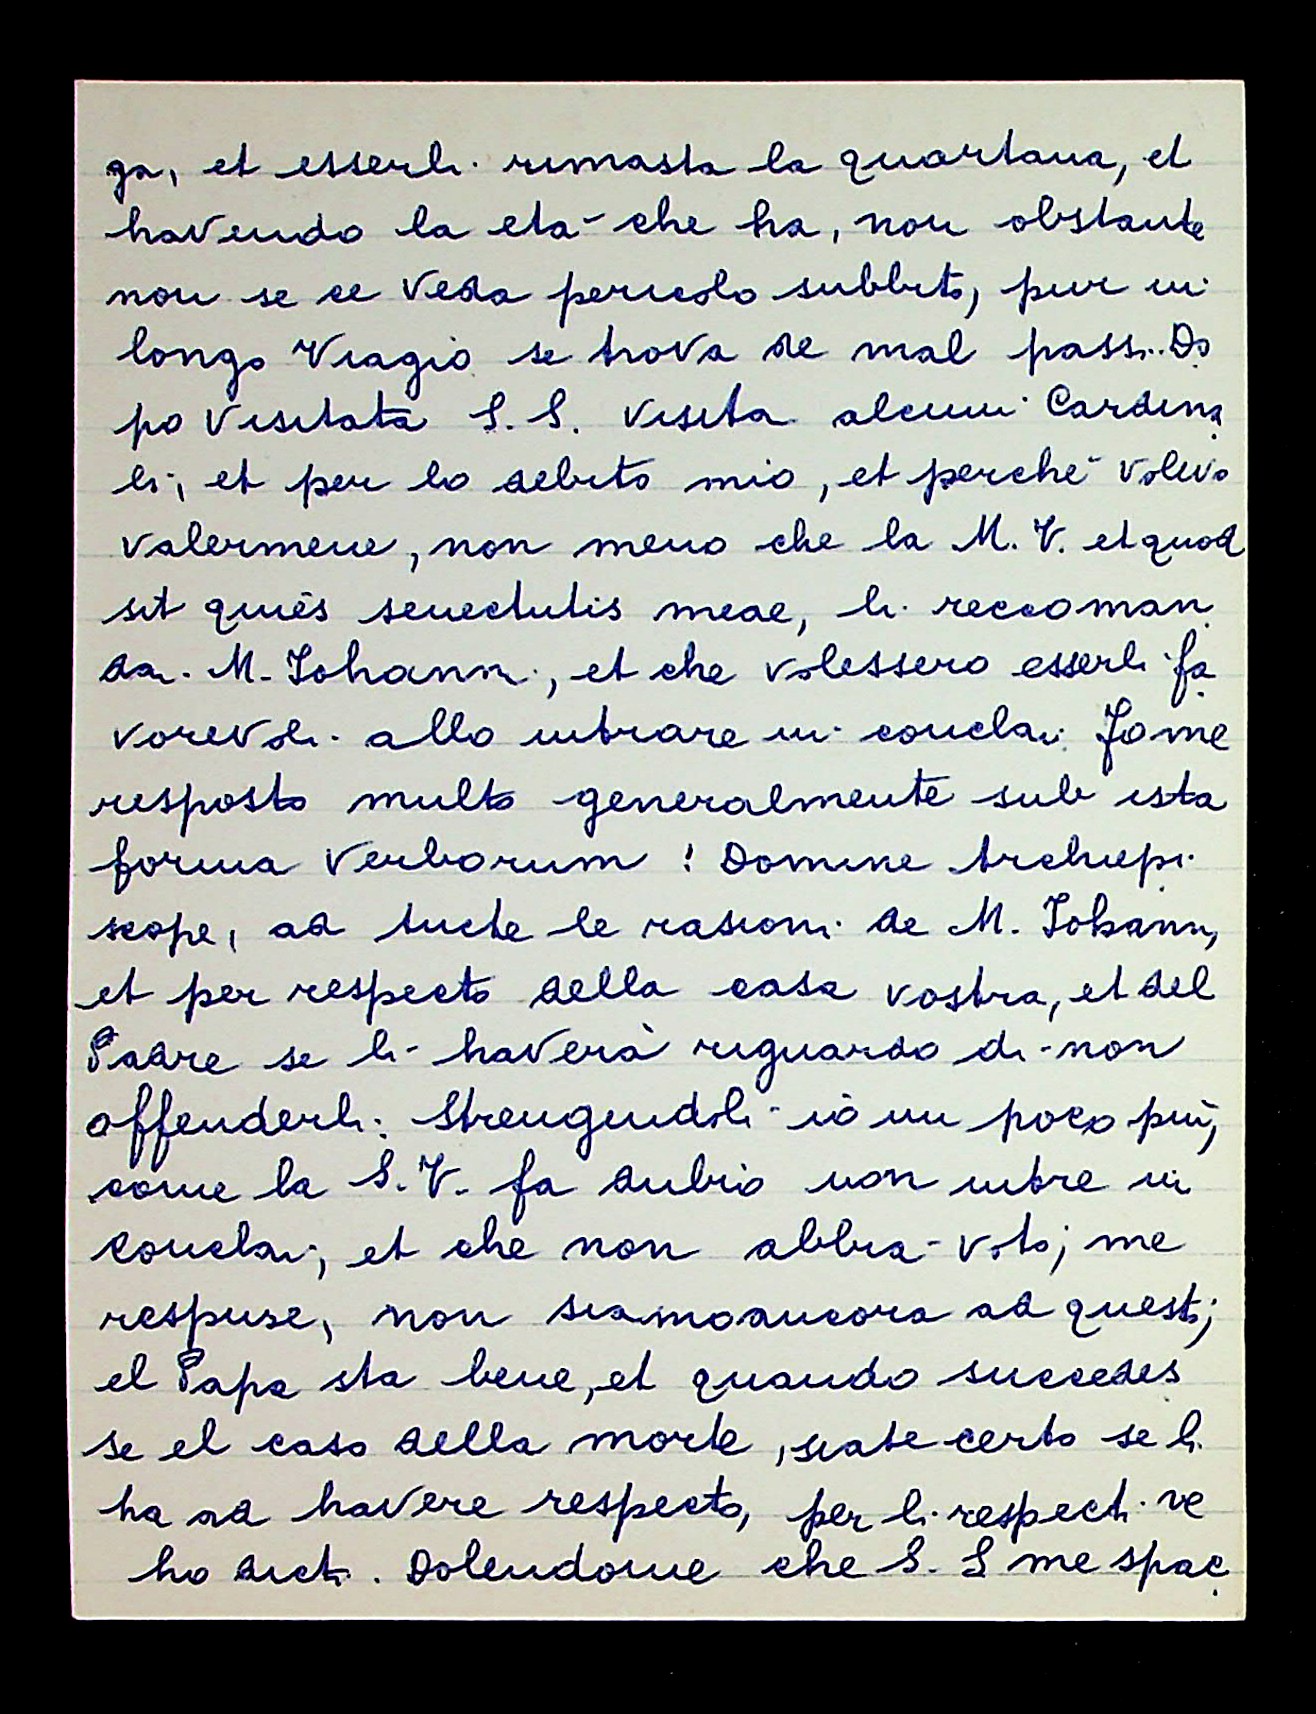 ga, et esserli rimasta la quartana, et
havendo la età che ha, non obstante
non se ce veda pericolo subbito, pur in
longo viagio se trova de mal passi. Do
po visitata S. S. visita alcuni Cardina
li, et per lo debito mio, et perché volevo
valermene, non meno che la M. V. et quod
sit quies senectutis meae, li reccoman
dai M. Johanni, et che volessero esserli fa
vorevoli allo intrare in conclavi. Fome
resposto multo generalmente sub ista
forma verborum: Domine Archiepi
scope, ad tucte le rasioni de M. Johanni,
et per respecto della casa vostra, et del
Padre se li haverà riguardo di non
offenderli. Strengendoli iò un poco più,
come la S. V. fa dubio non intre in
conclavi, et che non abbia voto; me
respuse, non siamo ancora ad questo;
el Papa sta bene, et quando succedes
se el caso della morte, siate certo se li
ha ad havere respecto, per li respecti ve
ho dicti. Dolendome che S. S. me spac